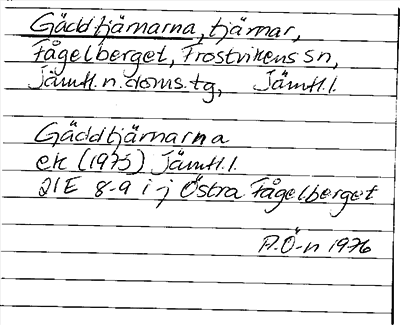 Gäddtjärnarna, tjärnar,
Fågelberget, Frostvikens sn,
Jämtl. n. doms. tg, Jämtl. l.
Gäddtjärnarna
ek (1975) Jämtl. l.
21E 8-9 i-j Östra Fågelberget
P.Ö-n 1976